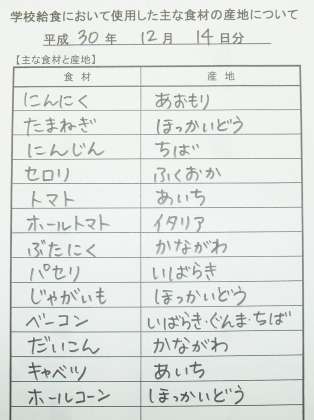 学校給食において使用した主な食材の産地について
平成 30 年 12 月 14 日分
【主な食材と産地】
食材 産地
にんにく あおもり
たまねぎ ほっかいどう
にんじん ちば
セロリ ふくおか
トマト あいち
ホールトマト イタリア
ぶたにく かながわ
パセリ いばらき
じゃがいも ほっかいどう
ベーコン いばらき・ぐんま・ちば
だいこん かながわ
キャベツ あいち
ホールコーン ほっかいどう